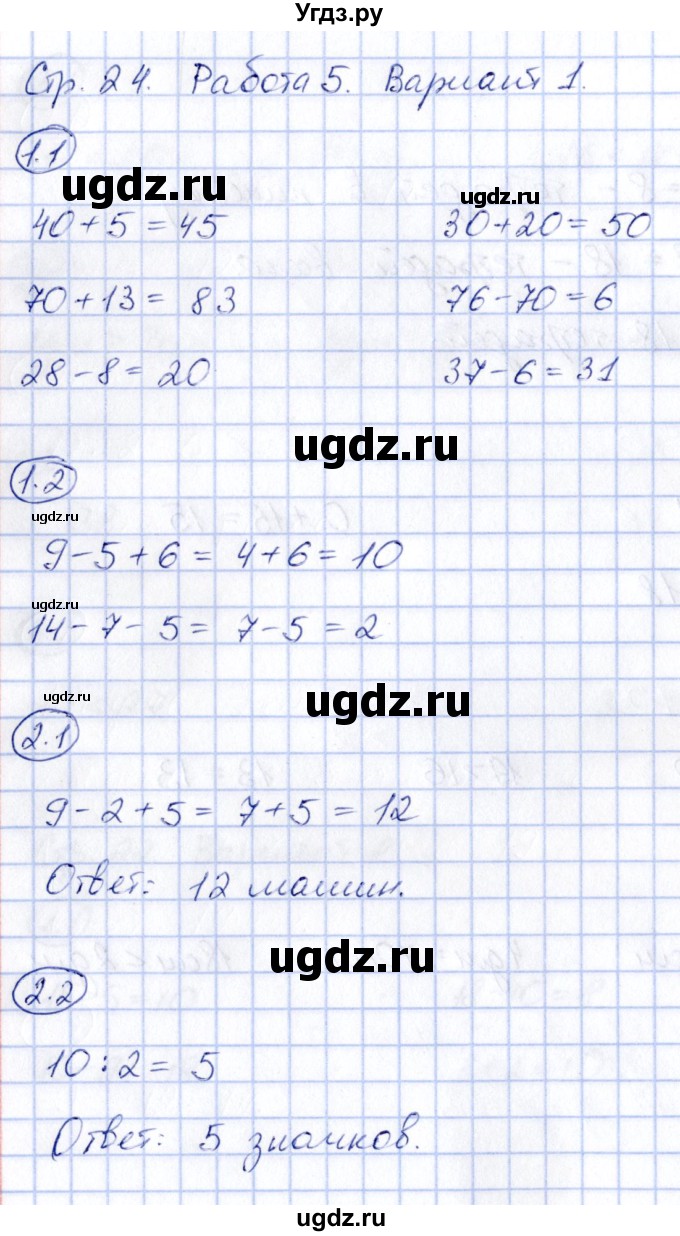 Угдз.ру
Стр. 24. Работа 5. Вариант 1.
1.1
ugdz.ru ugdz.ru
40+5=45 30+20=50
70+13= 83 76-70=6
28-8=20 37-6=31
ugdz.ru
1.2
ugdz.ru
9-5+6= 4+6=10
ugdz.ru
14-7-5= 7-5=2
ugdz.ru ugdz.ru
2.1
9-2+5= 7+5=12
Ответ: 12 машин.
ugdz.ru
2.2
10:2= 5
Ответ: 5 значков.
ugdz.ru
ugdz.ru